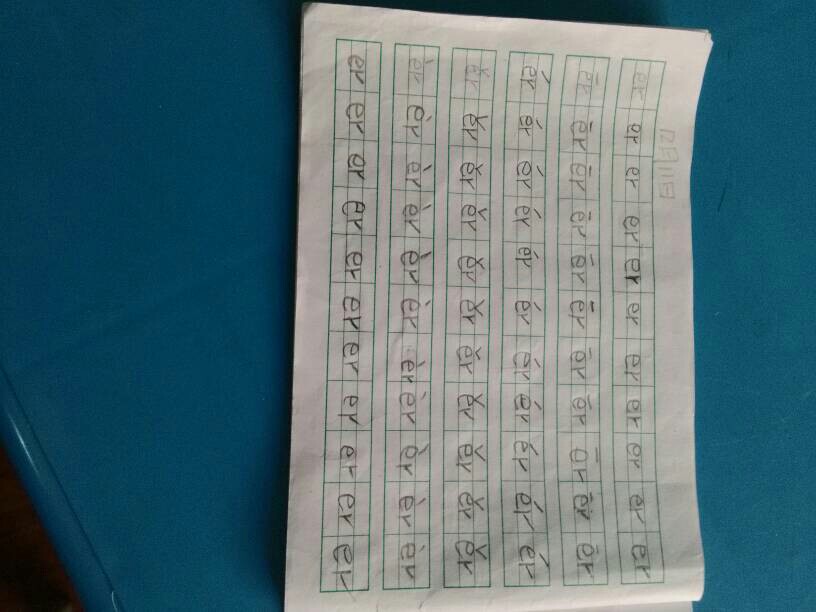 er er er er er er er er er er er
ēr ēr ēr ēr ēr ēr ēr ēr ēr ēr ēr
ér ér ér ér ér ér ér ér ér ér ér
ěr ěr ěr ěr ěr ěr ěr ěr ěr ěr ěr
èr èr èr èr èr èr èr èr èr èr èr
er er er er er er er er er er er